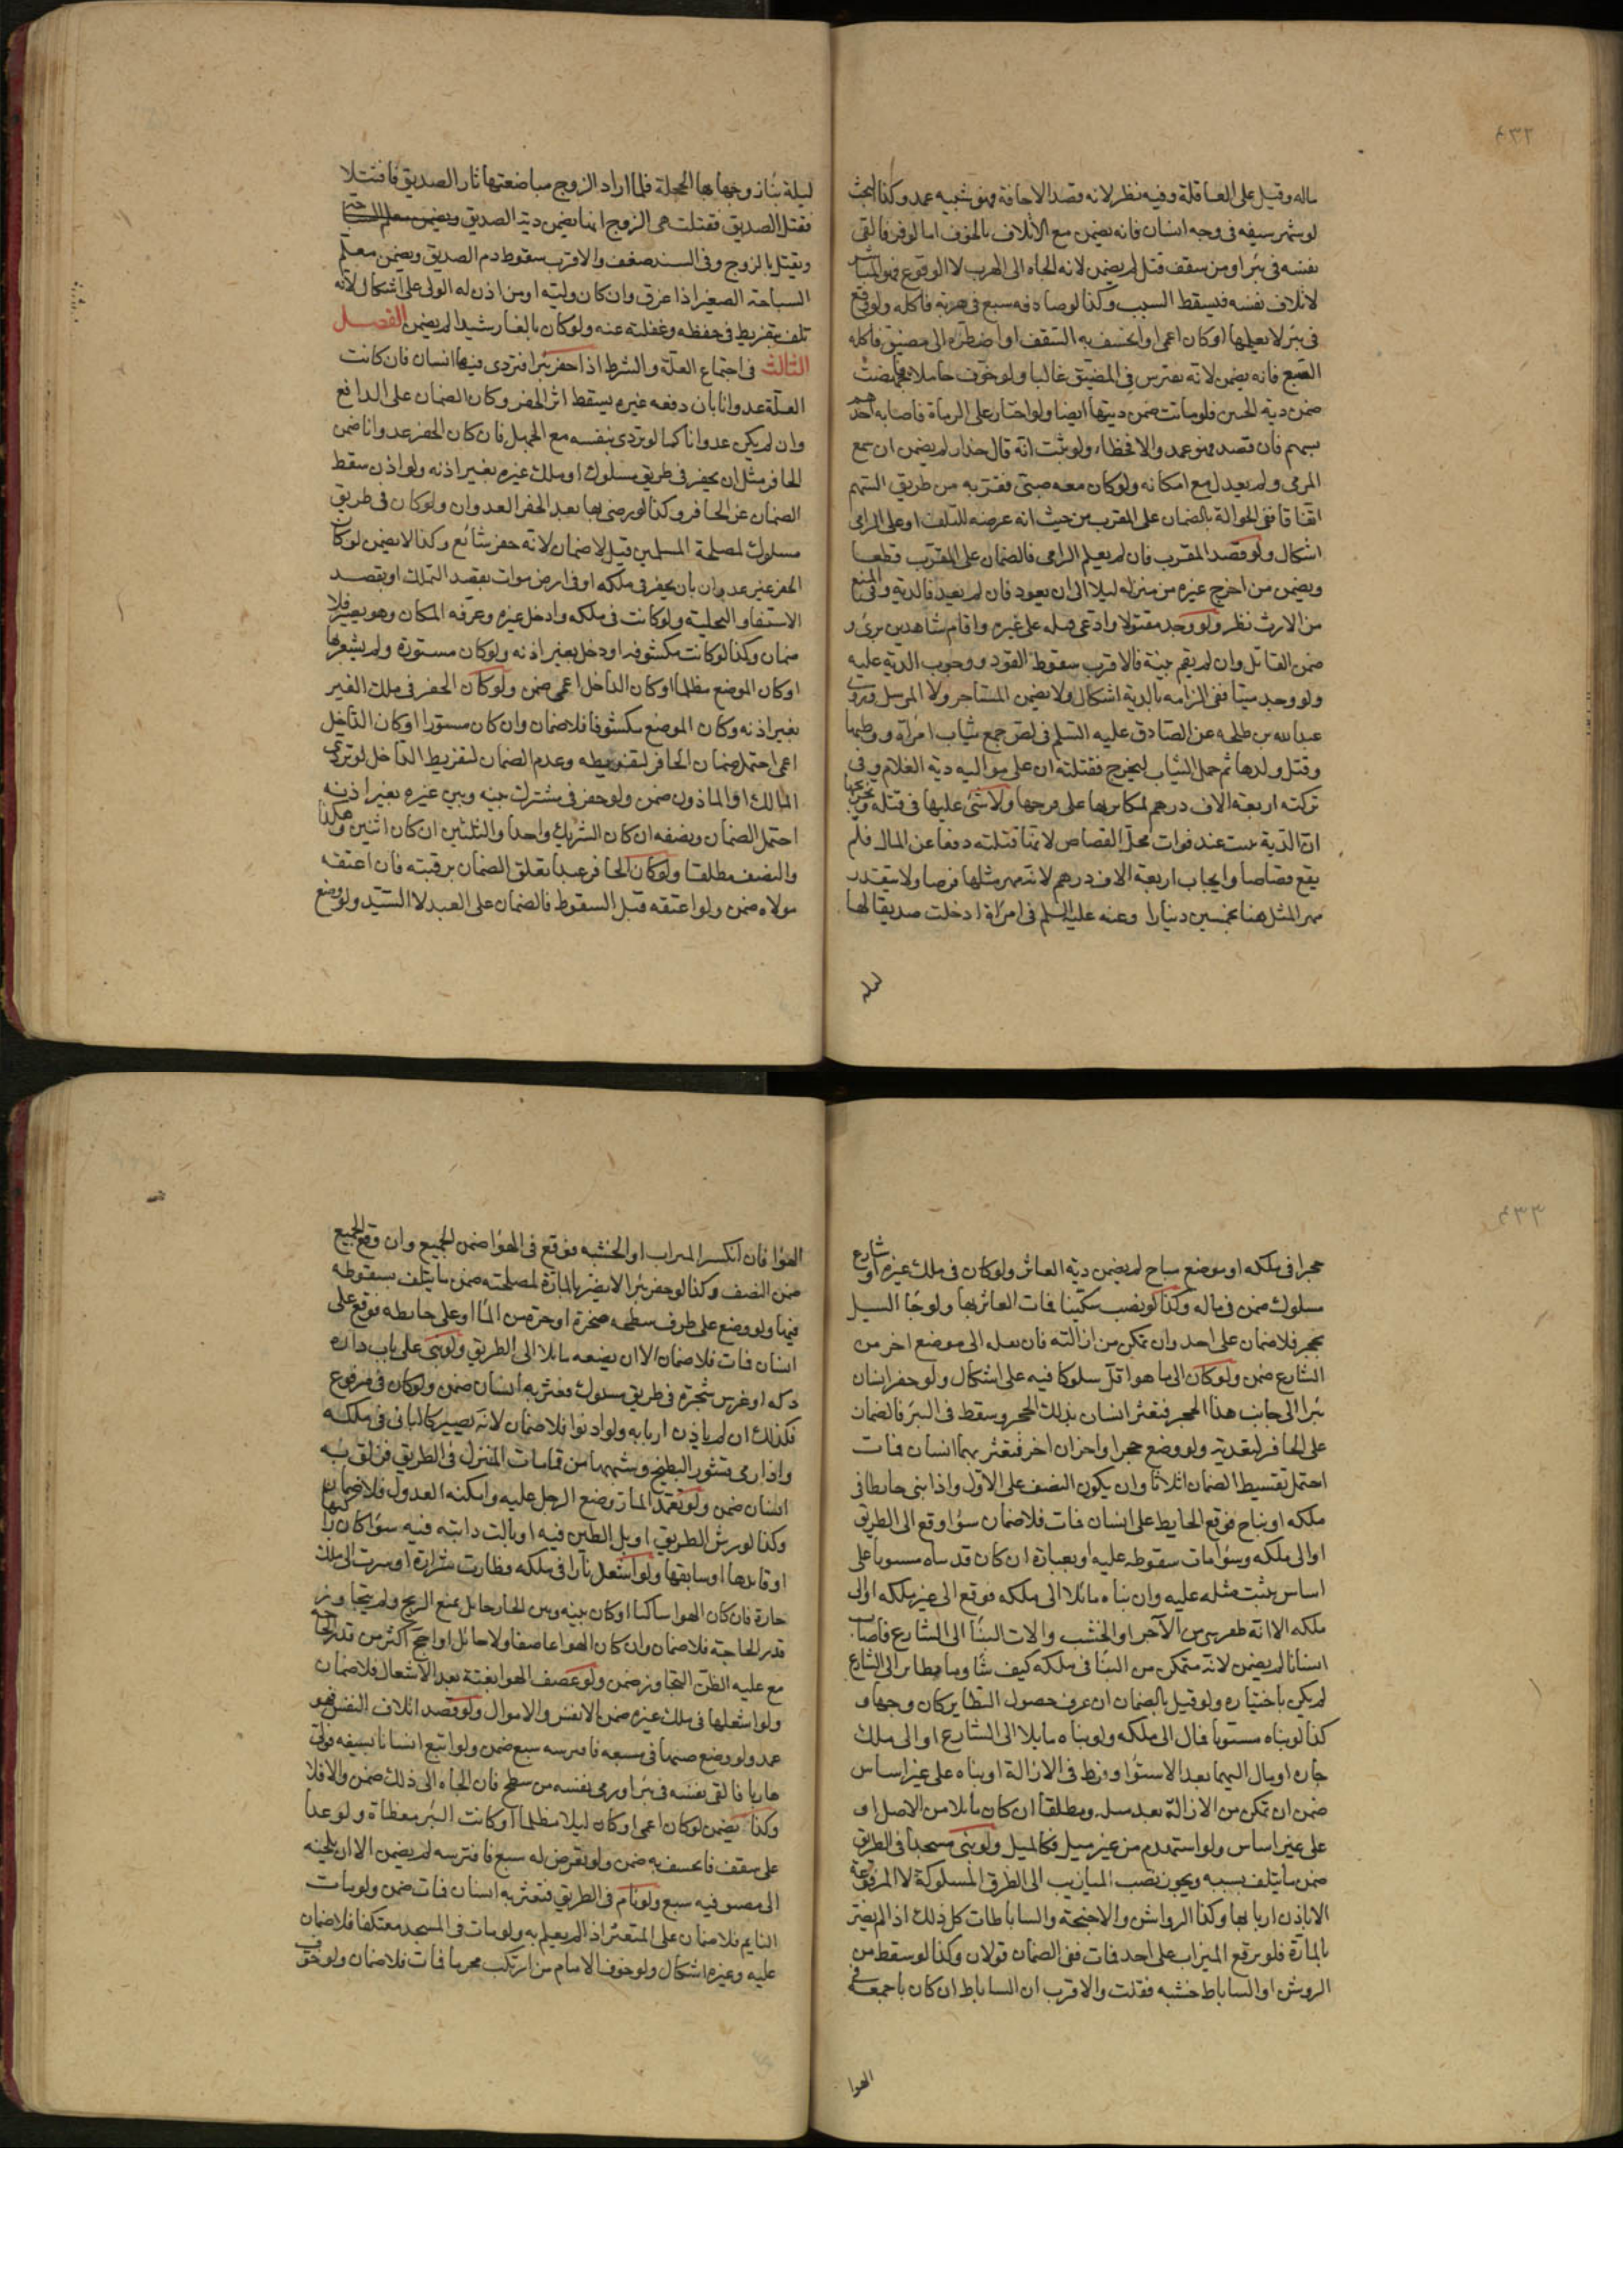 ٤٣٢
ماله وقيل على العاقلة وفيه نظر لانه قصد الاخافة فهو شبيه عمد وكذا البحث
لو شهر سيفه في وجه انسان فانه يضمن مع الاتلاف بالخوف اما لو فر فالقى
نفسه في بئر او من سقف قتل لم يضمن لانه الجاه الى الهرب لا الوقوع فهو المباشر
لاتلاف نفسه فيسقط السبب وكذا لو صادفه سبع في هربه فاكله ولو وقع
في بئر لا يعلمها او كان اعمى او انخسف به السقف او اضطره الى مضيق فاكله
السبع فانه يضمن لانه يفترس في المضيق غالبا ولو خوف حاملا فاجهضت
ضمن دية الجنين فلو ماتت ضمن ديتها ايضا ولو اجتاز على الرماة فاصابه احدهم
بسهم فان قصد فهو عمد والا فخطاء ولو ثبت انه قال حذار لم يضمن ان سمع
المرمى ولم يعدل مع امكانه ولو كان معه صبي فقربه من طريق السهم
اتفاقا ففي الحوالة بالضمان على المقرب من حيث انه عرضه للتلف او على الرامي
اشكال ولو قصد المقرب فان لم يعلم الرامي فالضمان على المقرب قطعا
ويضمن من اخرج غيره من منزله ليلا الى ان يعود فان لم يعد فالدية وفي المنع
من الارث نظر ولو وجد مقتولا وادعى قتله على غيره واقام شاهدين برئ و
ضمن القاتل وان لم يقم بينة فالاقرب سقوط القود ووجوب الدية عليه
ولو وجد ميتا ففي الزامه بالدية اشكال ولا يضمن المستاجر ولا المرسل وروى
عبدالله بن طلحه عن الصادق عليه السلم في لص جمع ثياب امراة ووطيها
وقتل ولدها ثم حمل الثياب ليخرج فقتلته ان على مواليه دية الغلام وفي
تركته اربعة الاف درهم لمكابرها على فرجها ولا شئ عليها في قتله وتخريجها
ان الدية ثبت عند فوات محل القصاص لانها قتلته دفعا عن المال فلم
يقع قصاصا وايجاب اربعة الاف درهم لانه مهر مثلها فرضا ولا يتقدر
مهر المثل هنا بخمسين دينارا وعنه عليه السلم في امراة ادخلت صديقا لها
ليله
ليلة بناء زوجها بها الحجلة فلما اراد الزوج مباضعتها ثار الصديق فاقتتلا
فقتل الصديق فقتلت هى الزوج انها يضمن دية الصديق
ويقتل بالزوج وفي السند ضعف والاقرب سقوط دم الصديق ويضمن معلم
السباحة الصغير اذا غرق وان كان وليه او من اذن له الولى على اشكال لانه
تلف بتفريط في حفظه وغفلته عنه ولو كان بالغا رشيدا لم يضمن الفصل
الثالث في اجتماع العلة والشرط اذا حفر بئرا فتردى فيها انسان فان كانت
العلة عدوانا بان دفعه غيره يسقط اثر الحفر وكان الضمان على الدافع
وان لم يكن عدوانا كما لو تردى بنفسه مع الجهل فان كان الحفر عدوانا ضمن
الحافر مثل ان يحفر في طريق مسلوك او ملك غيره بغير اذنه ولو اذن سقط
الضمان عن الحافر وكذا لو رضى بها بعد الحفر العدوان ولو كان في طريق
مسلوك لمصلحة المسلمين قيل لا ضمان لانه حفر شائع وكذا لا يضمن لو كان
الحفر غير عدوان بان يحفر في ملكه او في ارض موات بقصد التملك او بقصد
الاستقاء والتخلية ولو كانت في ملكه وادخل غيره وعرفه المكان وهو بصير فلا
ضمان وكذا لو كانت مكشوفه او دخل بغير اذنه ولو كان مستورة ولم يشعر بها
او كان الموضع مظلما او كان الداخل اعمى ضمن ولو كان الحفر في ملك الغير
بغير اذنه وكان الموضع مكشوفا فلا ضمان وان كان مستورا او كان الداخل
اعمى احتمل ضمان الحافر لتفريطه وعدم الضمان لتفريط الداخل لو تردى
المالك او الماذون ضمن ولو حفر في مشترك بينه وبين غيره بغير اذنه
احتمل الضمان ونصفه ان كان الشريك واحدا والثلثين ان كان اثنين وهكذا
والنصف مطلقا ولو كان الحافر عبدا تعلق الضمان برقبته فان اعتقه
مولاه ضمن ولو اعتقه قبل السقوط فالضمان على العبد لا السيد ولو وضع
٤٣٣
حجرا في ملكه او موضع مباح لم يضمن دية العاثر ولو كان في ملك غيره او شارع
مسلوك ضمن في ماله وكذا لو نصب سكينا فمات العاثر بها ولو جا السيل
بحجر فلا ضمان على احد وان تمكن من ازالته فان نعله الى موضع اخر من
الشارع ضمن ولو كان الى ما هو اقل سلوكا فيه على اشكال ولو حفر انسان
بئرا الى جانب هذا الحجر فتعثر انسان بذلك الحجر وسقط في البئر فالضمان
على الحافر لتعديه ولو وضع حجرا واخران اخر فتعثر بهما انسان فمات
احتمل تقسيط الضمان اثلاثا وان يكون النصف على الاول واذا بنى حايطا في
ملكه او مباح فوقع الحايط على انسان فمات فلا ضمان سوا وقع الى الطريق
او الى ملكه وسوا مات بسقوطه عليه او بعباره ان كان قد بناه مستويا على
اساس يثبت مثله عليه وان بناه مائلا الى ملكه فوقع الى غير ملكه او الى
ملكه الا انه طفر شئ من الآجر او الخشب والات البناء الى الشارع فاصاب
انسانا لم يضمن لانه متمكن من البناء في ملكه كيف شا وما تطاير الى الشارع
لم يكن باختياره ولو قيل بالضمان ان عرف حصول التطاير كان وجها و
كذا لو بناه مستويا فمال الى ملكه ولو بناه مايلا الى الشارع او الى ملك
جاره او مال اليهما بعد الاستوا وفرط في الازالة او بناه على غير اساس
ضمن ان تمكن من الازالة بعد ميله ومطلقا ان كان مايلا من الاصل او
على غير اساس ولو استهدم من غير ميل فكالميل ولو بنى مسجدا في الطريق
ضمن ما يتلف بسببه ويجوز نصب الميازيب الى الطرق المسلوكة لا المرفوعة
الا باذن اربابها وكذا الرواشن والاجنحة والساباطات كل ذلك اذا لم يضر
بالمارة فلو وقع الميزاب على احد فمات ففي الضمان قولان وكذا لو سقط من
الروشن او الساباط خشبه فقتلت والاقرب ان الساباط ان كان باجمعه في
الهوا
الهوا فان انكسر الميزاب او الخشبه فوقع في الهوا ضمن الجميع وان وقع الجميع
ضمن النصف وكذا لو حفر بئرا لا يضر بالمارة لمصلحته ضمن ما يتلف بسقوطه
فيها ولو وضع على طرف سطحه صخرة او جرة من الماء او على حايطه فوقع على
انسان فمات فلا ضمان الا ان يضعه مايلا الى الطريق ولو بنى على باب داره
دكه او غرس شجرة في طريق مسلوك فعثر به انسان ضمن ولو كان في مرفوع
فكذلك ان لم ياذن اربابه ولو اذنوا فلا ضمان لانه يصير كالبانى في ملكه
واذا رمى قشور البطيخ وشبهها من قمامات المنزل في الطريق فزلق به
انسان ضمن ولو تعمد المار وضع الرجل عليه وامكنه العدول فلا ضمان
وكذا لو رش الطريق او بل الطين فيه او بالت دابته فيه سوا كان راكبها
او قايدها او سايقها ولو اشتعل نارا في ملكه وطارت شرارة او سرت الى ملك
جاره فان كان الهوا ساكنا او كان بينه وبين الجار حايل يمنع الريح ولم يتجاوز
قدر الحاجة فلا ضمان وان كان الهوا عاصفا ولا حائل او اجج اكثر من قدر الحاجة
مع غلبة الظن التجاوز ضمن ولو عصف الهوا بغتة بعد الاشعال فلا ضمان
ولو اشعلها في ملك غيره ضمن الانفس والاموال ولو قصد اتلاف النفس فهو
عمد ولو وضع صبيا في مسبعه فافترسه سبع ضمن ولو اتبع انسانا بسيفه فولى
هاربا فالقى نفسه في بئر او رمى نفسه من سطح فان الجاه الى ذلك ضمن والا فلا
وكذا يضمن لو كان اعمى او كان ليلا مظلما او كانت البئر مغطاة ولو عدا
على سقف فانخسف به ضمن ولو تعرض له سبع فافترسه لم يضمن الا ان يلجئه
الى مضيق فيه سبع ولو نام في الطريق فتعثر به انسان فمات ضمن ولو مات
النايم فلا ضمان على المتعثر اذا لم يعلم به ولو مات في المسجد معتكفا فلا ضمان
عليه وغيره اشكال ولو خوف الامام من ارتكب محرما فمات فلا ضمان ولو خوف